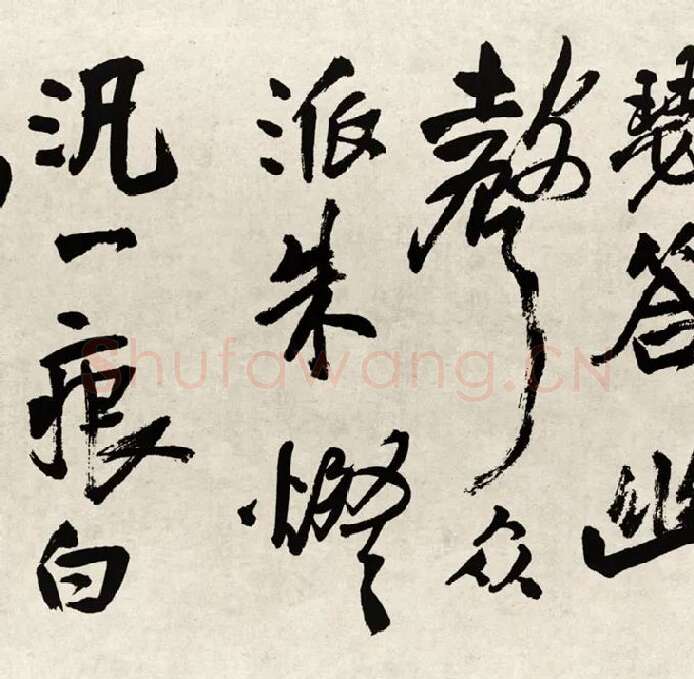 瑟答幽
聲众
派朱燈
汎一痕白
Shufawang.CN